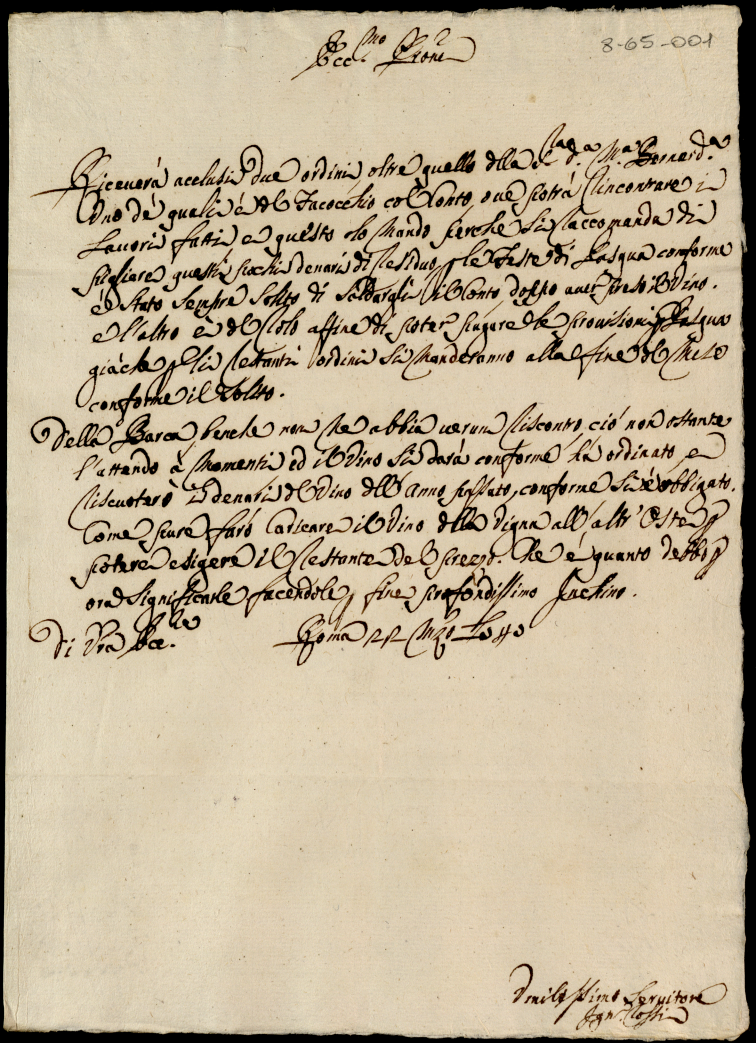 8-65-001
Ecc.mo P.rone
Riceverà acclusi due ordini oltre quello della Rag.a d.a M.a Bernard.a
Uno de quali è del Facocchio col Conto, ove potrà rincontrare i
Lavori fatti e questo lo Mando perche si raccomanda di
pigliare questi pochi denari di residuo p le Feste di Pasqua conforme
è stato sempre solito di saldargli il Conto, doppo aver preso il Vino.
e l'altro è del Solo affine di poter pagare le provisioni p Pasqua
giàche p li restanti ordini si Manderanno alla fine del Mese
conforme il Solito.
Della Barca, benche non Ne abbia verun riscontro, ciò non ostante
l'attendo à Momenti ed il Vino si darà conforme hà ordinato, e
riscuoterò i denari del Vino dell' anno passato, conforme si è obbligato.
Come pure farò Caricare il Vino della Vigna all' altr' Oste p
potere esigere il restante del prezzo. Ne è quanto debbo p
ora Significarle facendole p fine profondissimo Inchino.
Di Vra Ecc.za
Roma 22 Mzo 1740
Umilissimo Servitore
Ign. Rossi